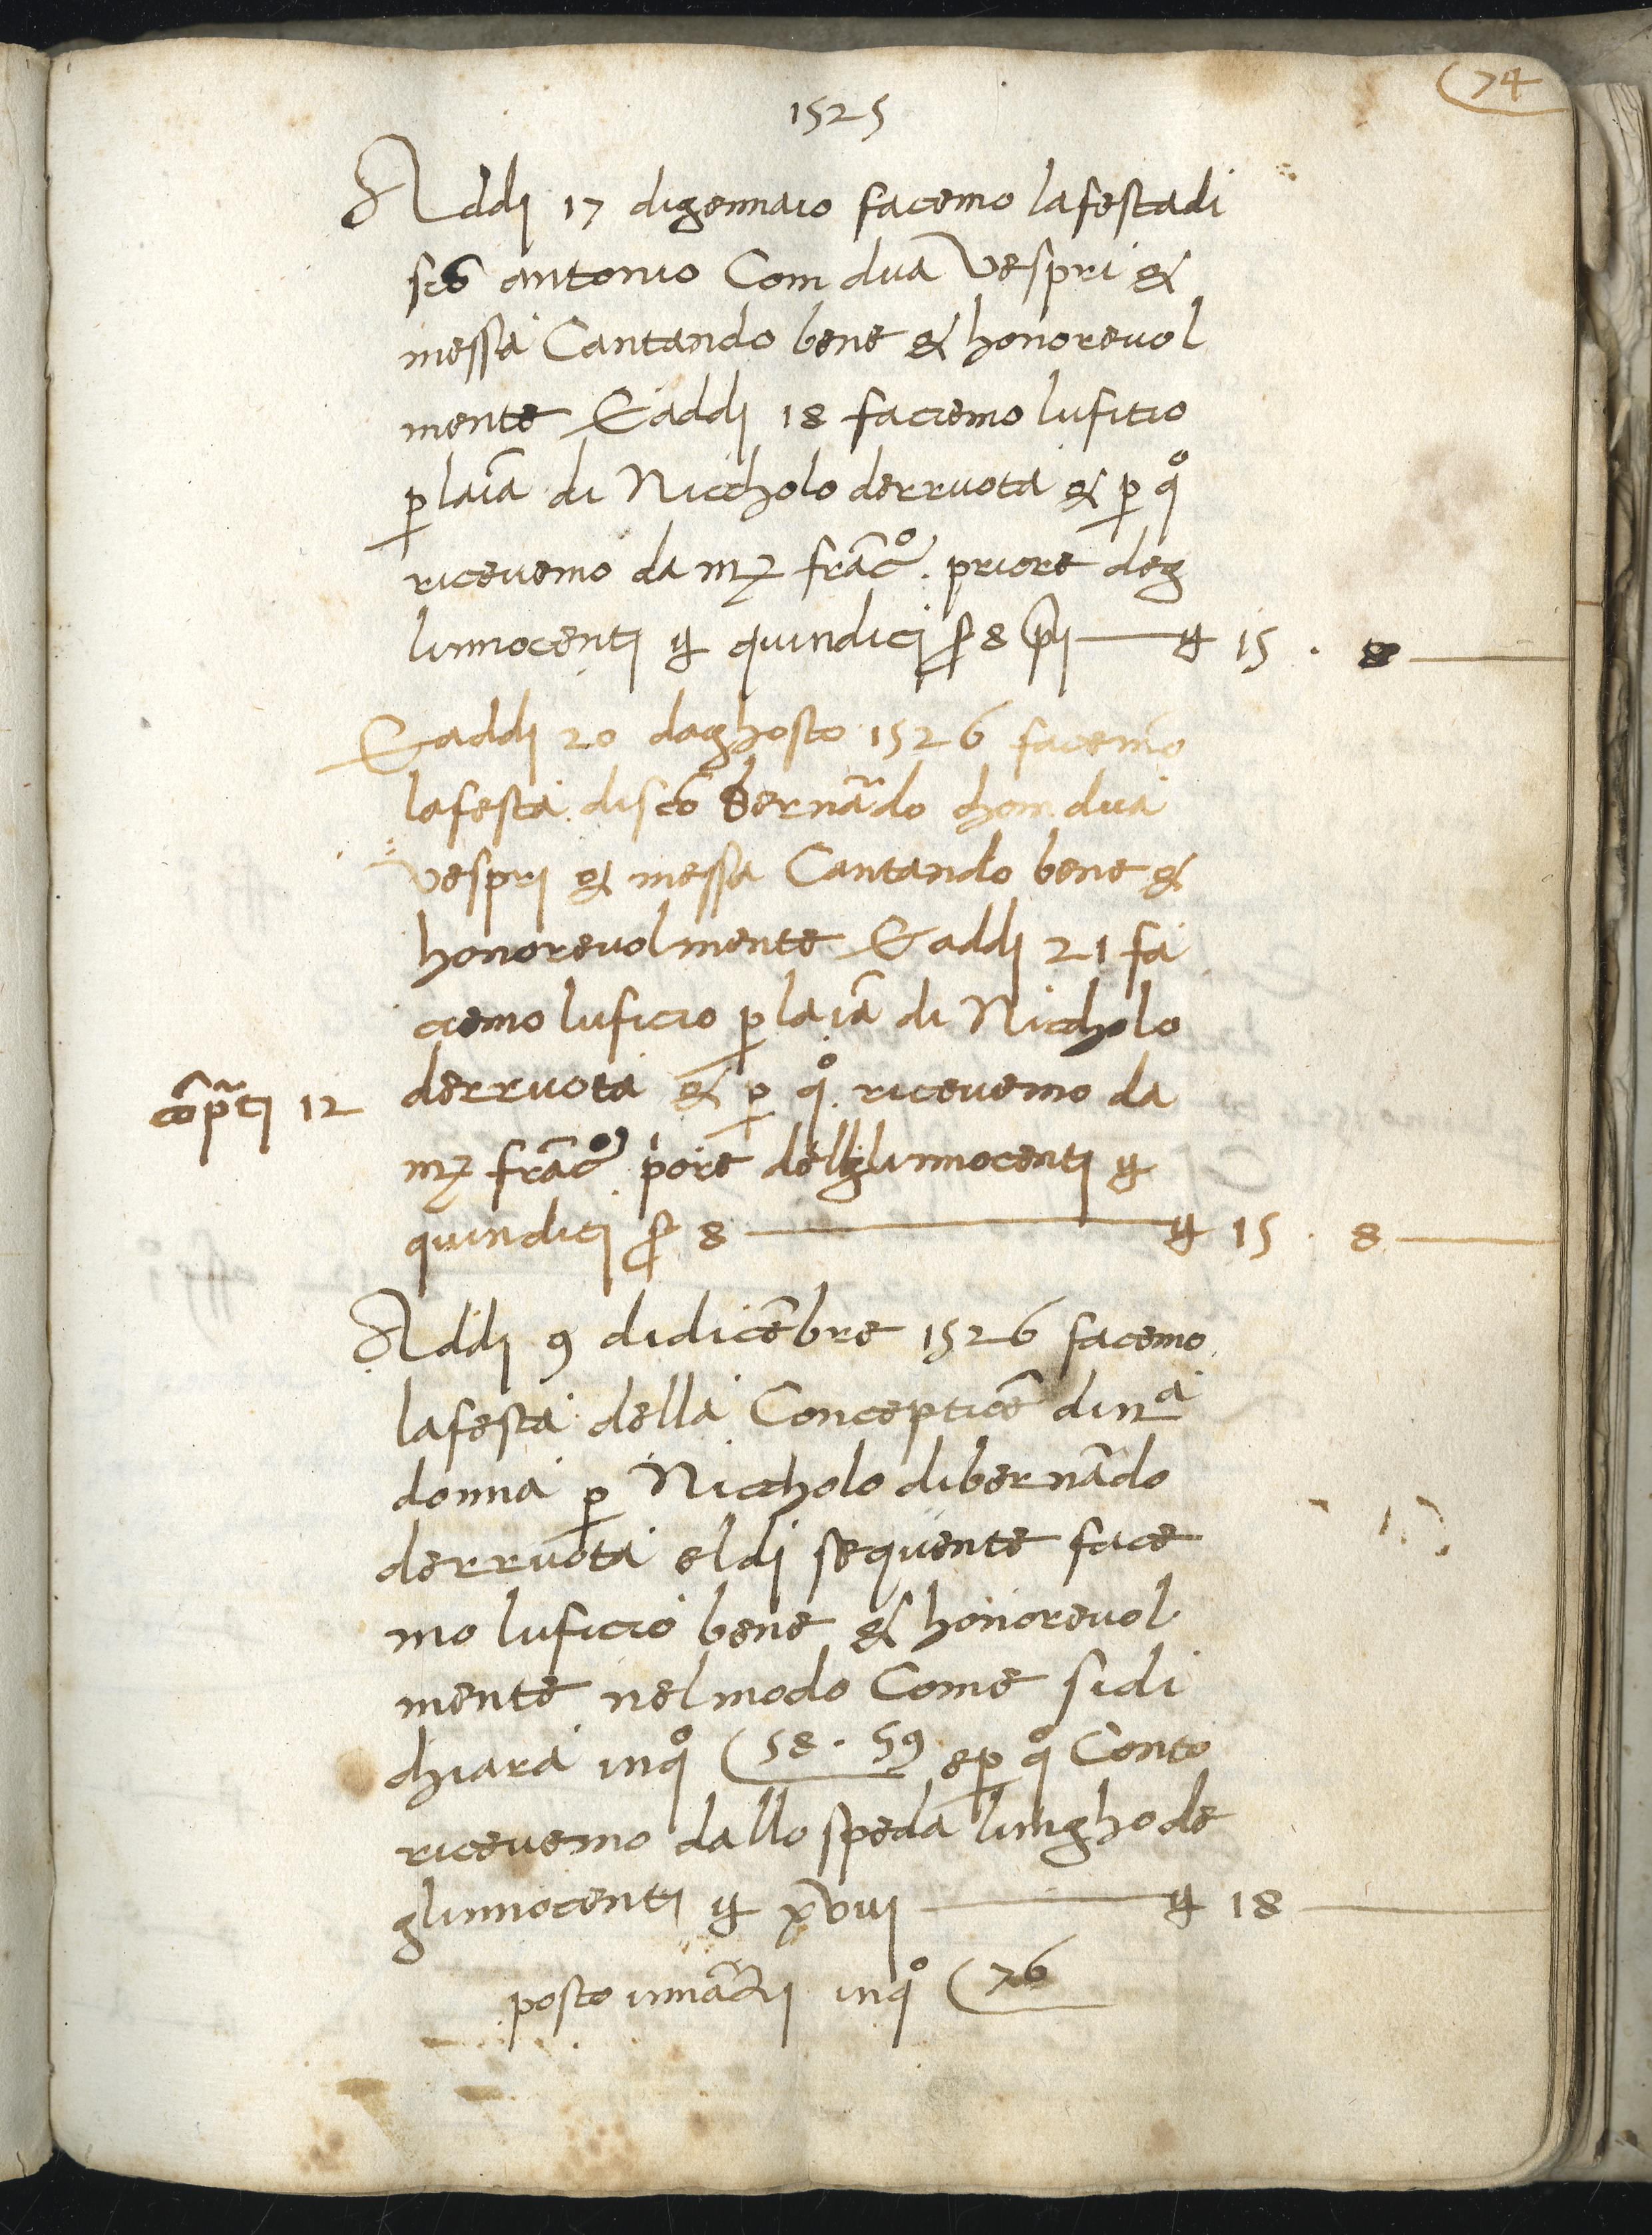 74
1525
Addi 17 digennaio facemo lafestadi
sc̄o antonio Com dua vespri &
messa Cantando bene & honorevol
mente E addi 18 faciemo lufitio
p̱ laīa di Niccholo derruota & p̱ qº
ricevemo da mʒ frāc.º priore deg
linnocenti ₤ quindici ß 8 p̄i — ₤ 15 . 8 —
E addi 20 daghosto 1526 facemo
lafesta disc̄o bernārdo chom dua
vespri & messa Cantando bene &
honorevolmente E addi 21 fa
ciemo luficio p̱ laīa di Niccholo
cōpūti 12 derruota & p̱ qº ricevemo da
mʒ frāc.º pi̇ore deglinnocenti ₤
quindici ß 8 — ₤ 15 . 8 —
Addi 9 didicēbre 1526 facemo
lafesta della Conceptiōe din.ª
donna p̱ Niccholo dibernārdo
derruota eldi sequente face
mo luficio bene & honorevol
mente nelmodo Come sidi
chiara inqº 58 . 59 ep̱ qº Conto
ricevemo dallo speda linghode
glinnocenti ₤ xviii — ₤ 18 —
posto innāzi inqº 76